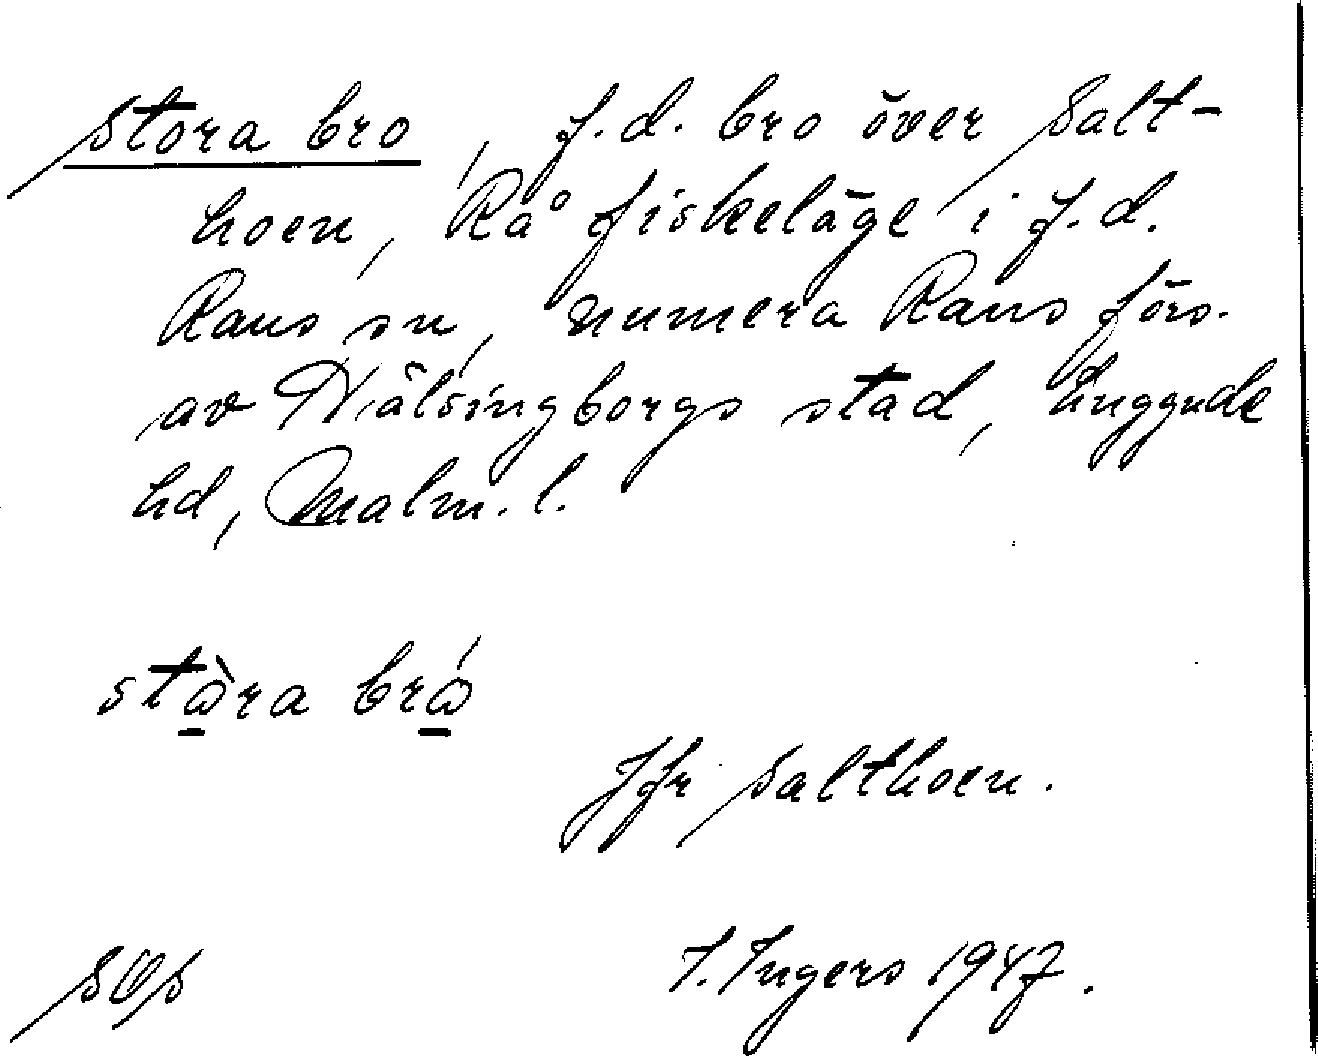 Stora bro, f.d. bro över Salt-
hoen, Råå fiskeläge i f.d.
Raus sn, numera Raus förs.
av Hälsingborgs stad, Luggude
hd, Malm. l.
stɷ̠̀ra brɷ̠́
Jfr Salthoen.
I. Ingers 1947.